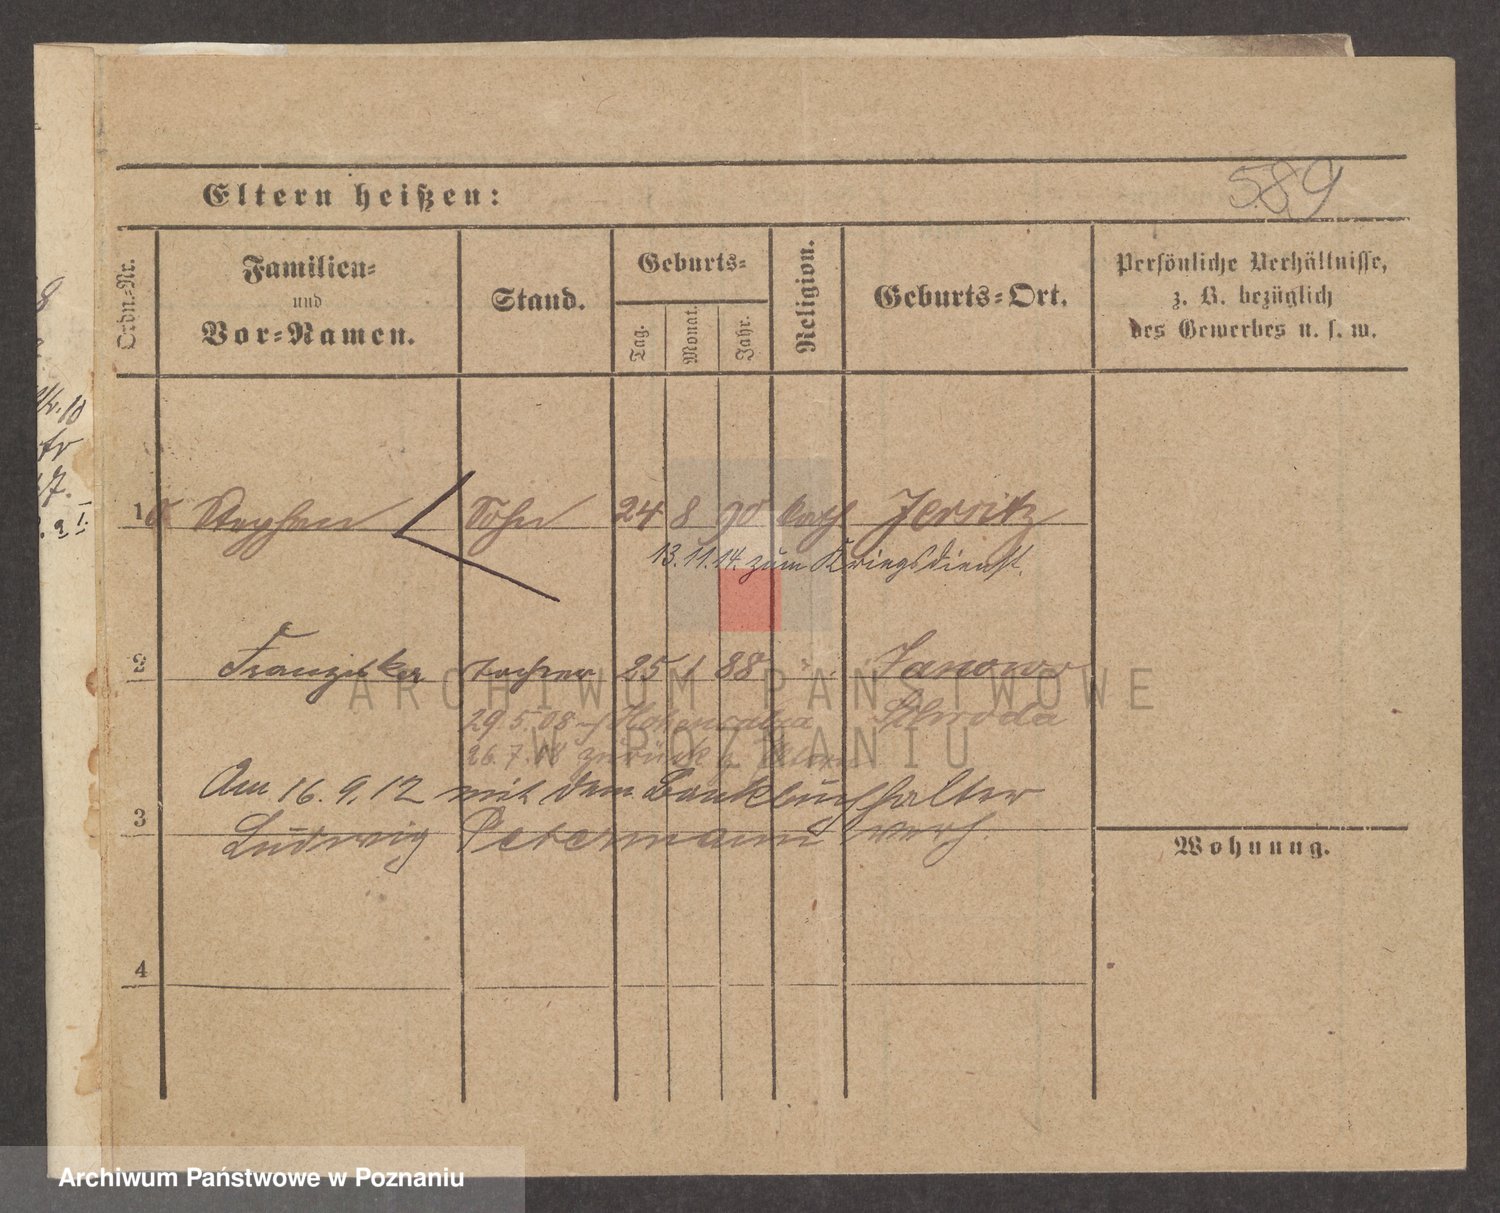 589
Eltern heißen:
Ordn.-Nr.
Familien-
und
Vor-Namen.
Stand.
Geburts-
Tag.
Monat.
Jahr.
Religion.
Geburts-Ort.
Persönliche Verhältnisse,
z. B. bezüglich
des Gewerbes u. s. w.
1 Stephan Sohn 24 8 90 kath Jersitz
13.11.14. zum Kriegsdienst.
2 Franziska Tochter 25 1 88 Janowo
29.5.08 Hohensalza Schroda
26.7.08 zurück z.
Am 16.9.12 mit dem Bankbuchhalter
3 Ludwig Petermann verh.
Wohnung.
4
8
10
17.
ARCHIWUM PAŃSTWOWE
W POZNANIU
Archiwum Państwowe w Poznaniu